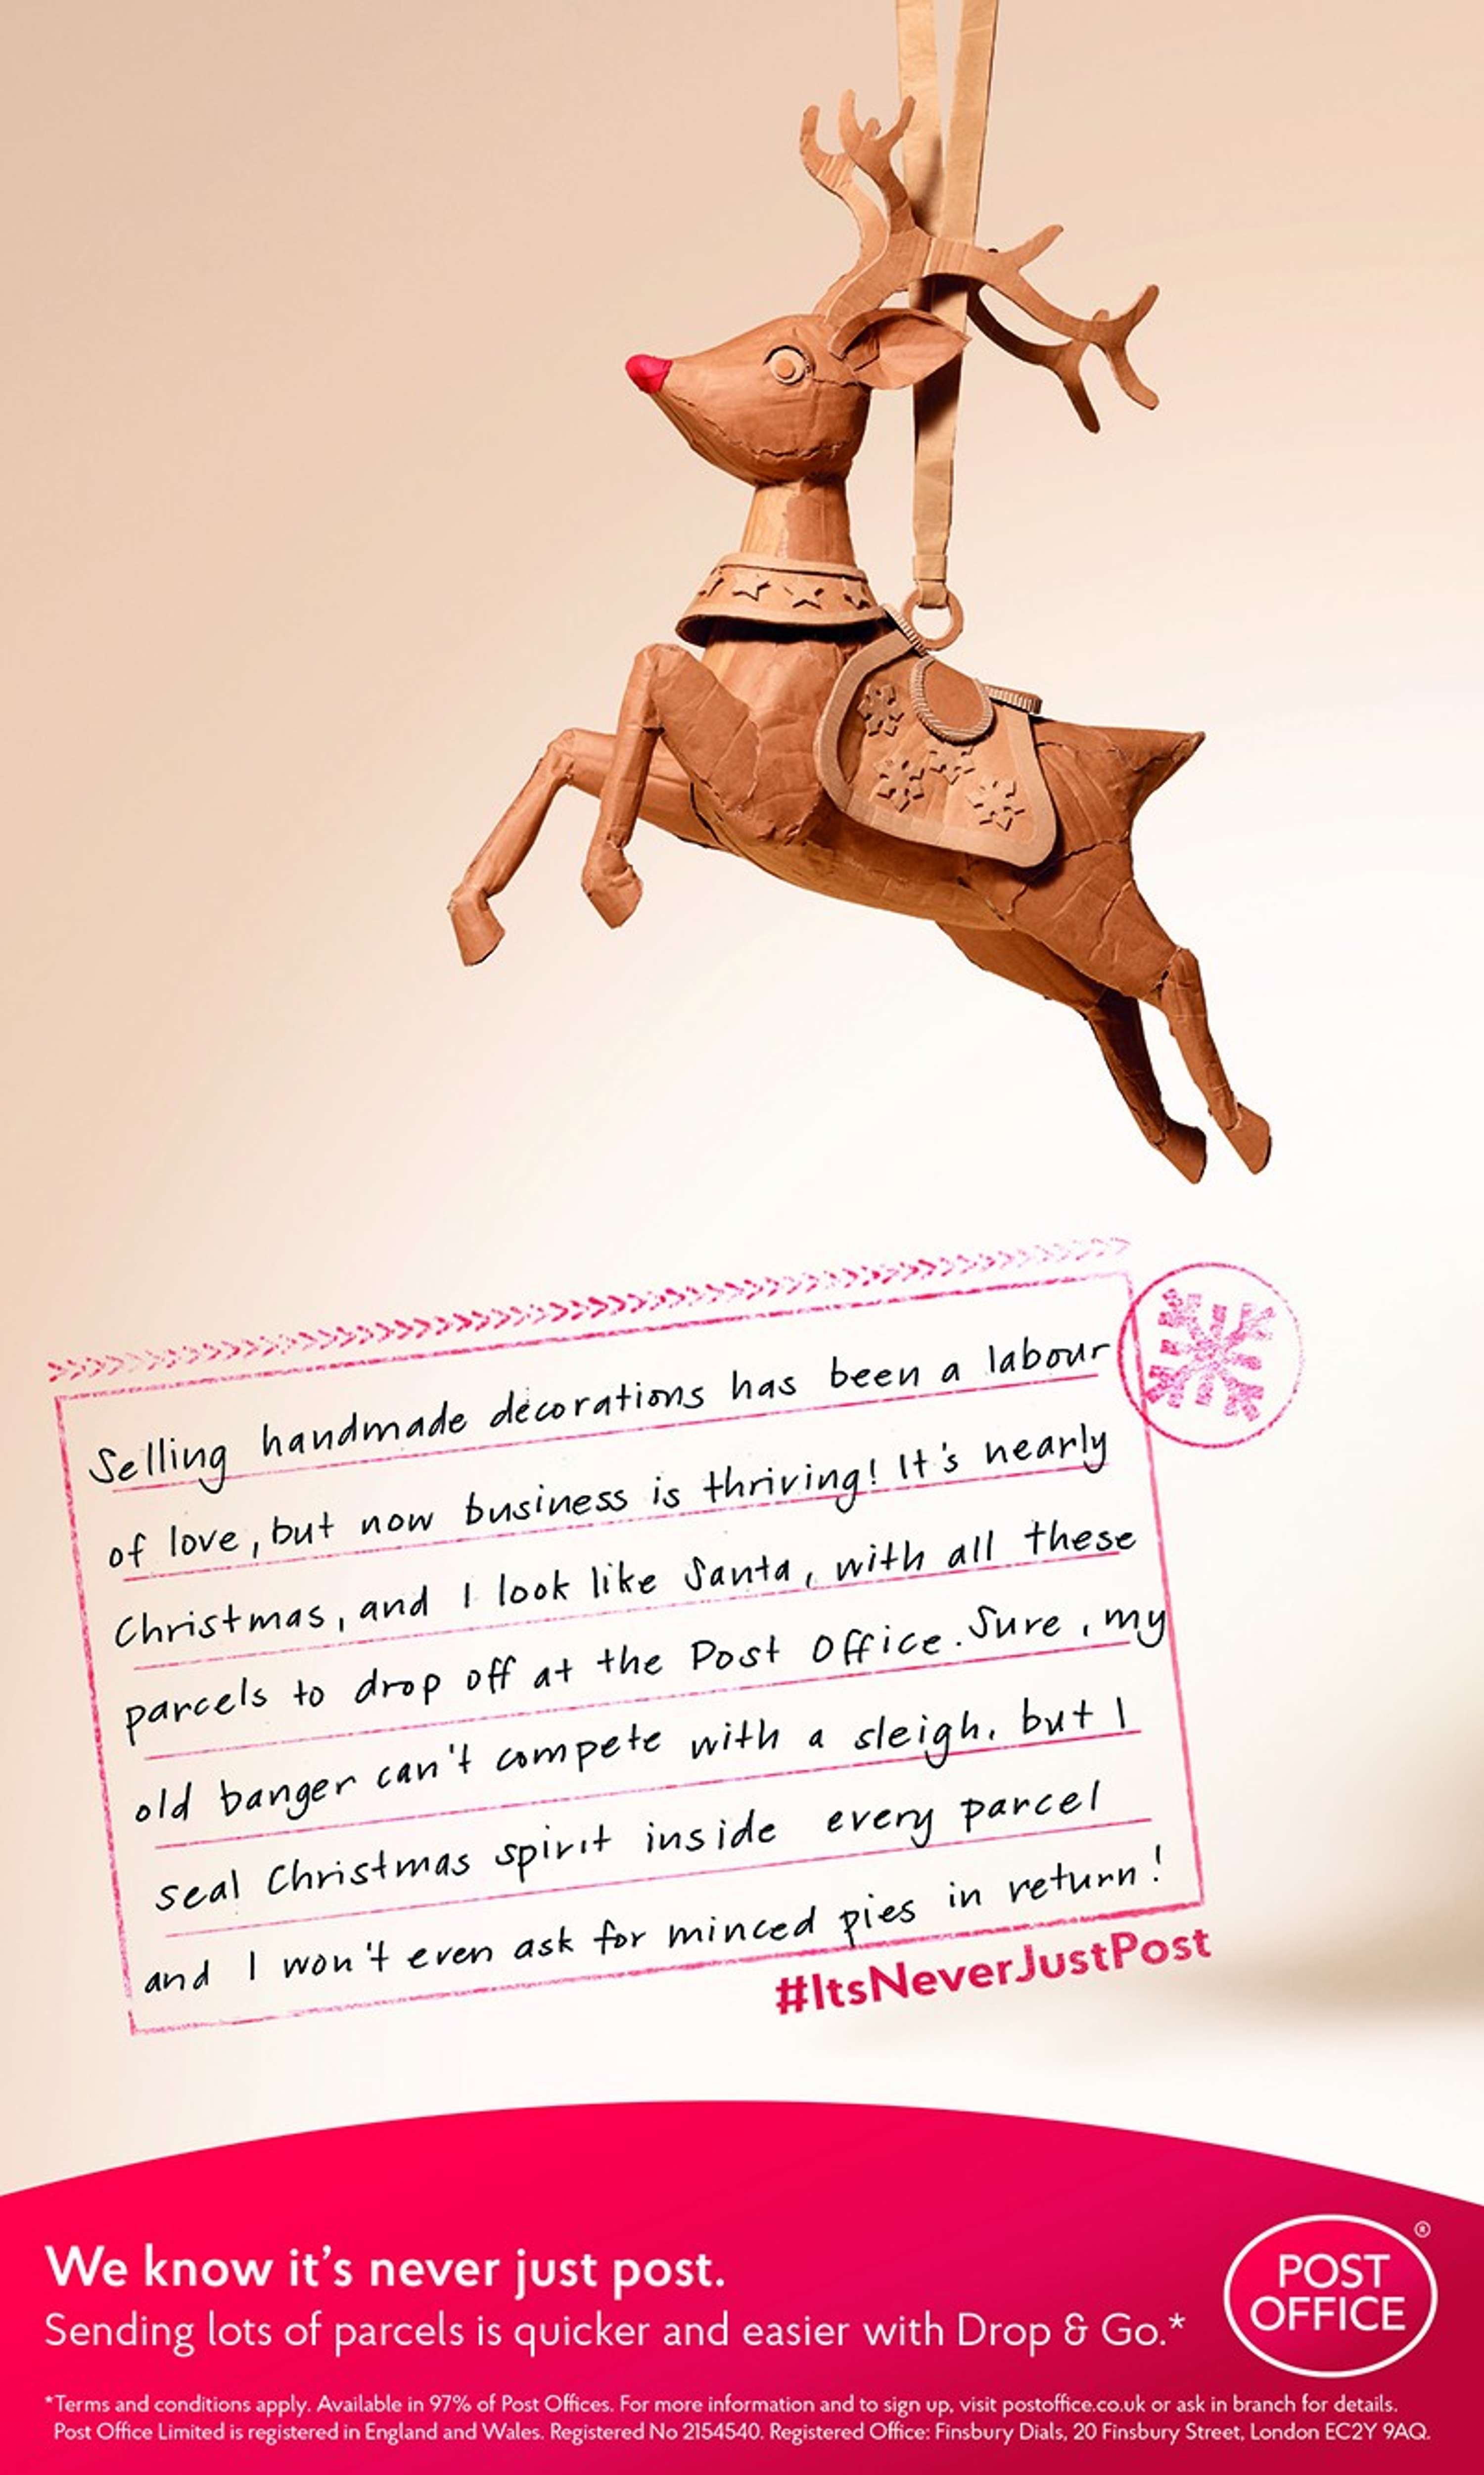 Selling handmade decorations has been a labour
of love, but now business is thriving! It's nearly
Christmas, and I look like Santa, with all these
parcels to drop off at the Post Office. Sure, my
old banger can't compete with a sleigh, but I
seal Christmas spirit inside every parcel
and I won't even ask for minced pies in return!
#ItsNeverJustPost
We know it's never just post.
Sending lots of parcels is quicker and easier with Drop & Go.*
POST
OFFICE
®
*Terms and conditions apply. Available in 97% of Post Offices. For more information and to sign up, visit postoffice.co.uk or ask in branch for details.
Post Office Limited is registered in England and Wales. Registered No 2154540. Registered Office: Finsbury Dials, 20 Finsbury Street, London EC2Y 9AQ.